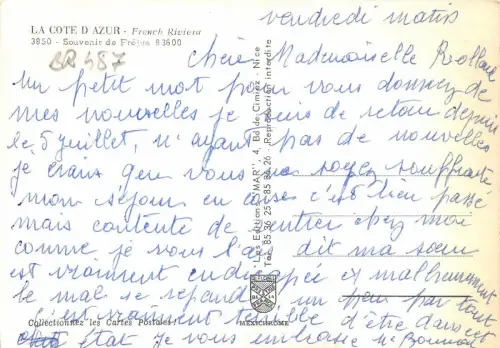 LA COTE D'AZUR - French Riviera
3850 - Souvenir de Fréjus 83600
BR 487
vendredi matin
chère Mademoiselle Rolland
Un petit mot pour vous donner de
mes nouvelles je suis de retour depuis
le 5 juillet, n'ayant pas de nouvelles
je crains que vous ne soyez souffrante
mon séjour en corse c'est bien passé
mais contente de rentrer chez moi
comme je vous l'ai dit ma sœur
est vraiment endicapée et malheureusement
le mal se répend un peu par tout
c'est vraiment terrible d'être dans cet
état je vous embrasse
"Les Editions "MAR", 4, Bd de Cimiez - Nice
Tél. 85 36 25 - 85 84 26 - Reproduction interdite
Collectionnez les Cartes Postales
MEXICHROME